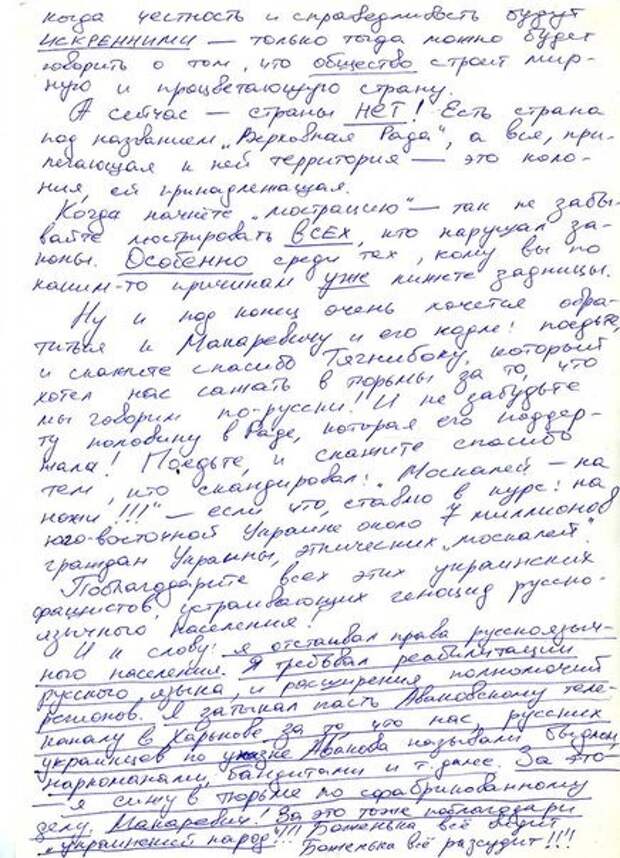 когда честность и справедливость будут
ИСКРЕННИМИ — только тогда можно будет
говорить о том, что общество строит мир-
ную и процветающую страну.
А сейчас — страны НЕТ! Есть страна
под названием „Верховная Рада", а вся, при-
легающая к ней территория — это коло-
ния, ей принадлежащая.
Когда начнёте „люстрацию" — так не забы-
вайте люстрировать ВСЕХ, кто нарушал за-
коны. Особенно среди тех, кому вы по
каким-то причинам уже лижете задницы.
Ну и под конец очень хочется обра-
титься к Макаревичу и его кодле: поедьте,
и скажите спасибо Тягнибоку, который
хотел нас сажать в тюрьмы за то, что
мы говорим по-русски! И не забудьте
ту половину в Раде, которая его поддер-
жала! Поедьте, и скажите спасибо
тем, кто скандировал: „Москалей — на
ножи!!!" — если что, ставлю в курс: на
юго-восточной Украине около 7 миллионов
граждан Украины, этнических „москалей".
Поблагодарите всех этих украинских
фашистов, устраивающих геноцид русско-
язычного населения!
И к слову: я отстаивал права русскоязыч-
ного населения. Я требовал реабилитации
русского языка, и расширения полномочий
регионов. Я затыкал пасть Аваковскому теле-
каналу в Харькове за то, что нас, русских
украинцов по указке Авакова называли быдлом,
наркоманами, бандитами и т. далее. За это
— я сижу в тюрьме по сфабрикованному
делу. Макаревич! За это тоже поблагодари
„украинский народ"!!! Боженька всё видит
Боженька всё рассудит!!!